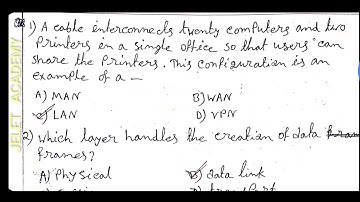 JELET ACADEMY
1) A cable interconnects twenty computers and two
printers in a single office so that users can
share the printers. This configuration is an
example of a —
A) MAN B) WAN
C) LAN D) VPN
2) which layer handles the creation of data
frames?
A) Physical B) data link